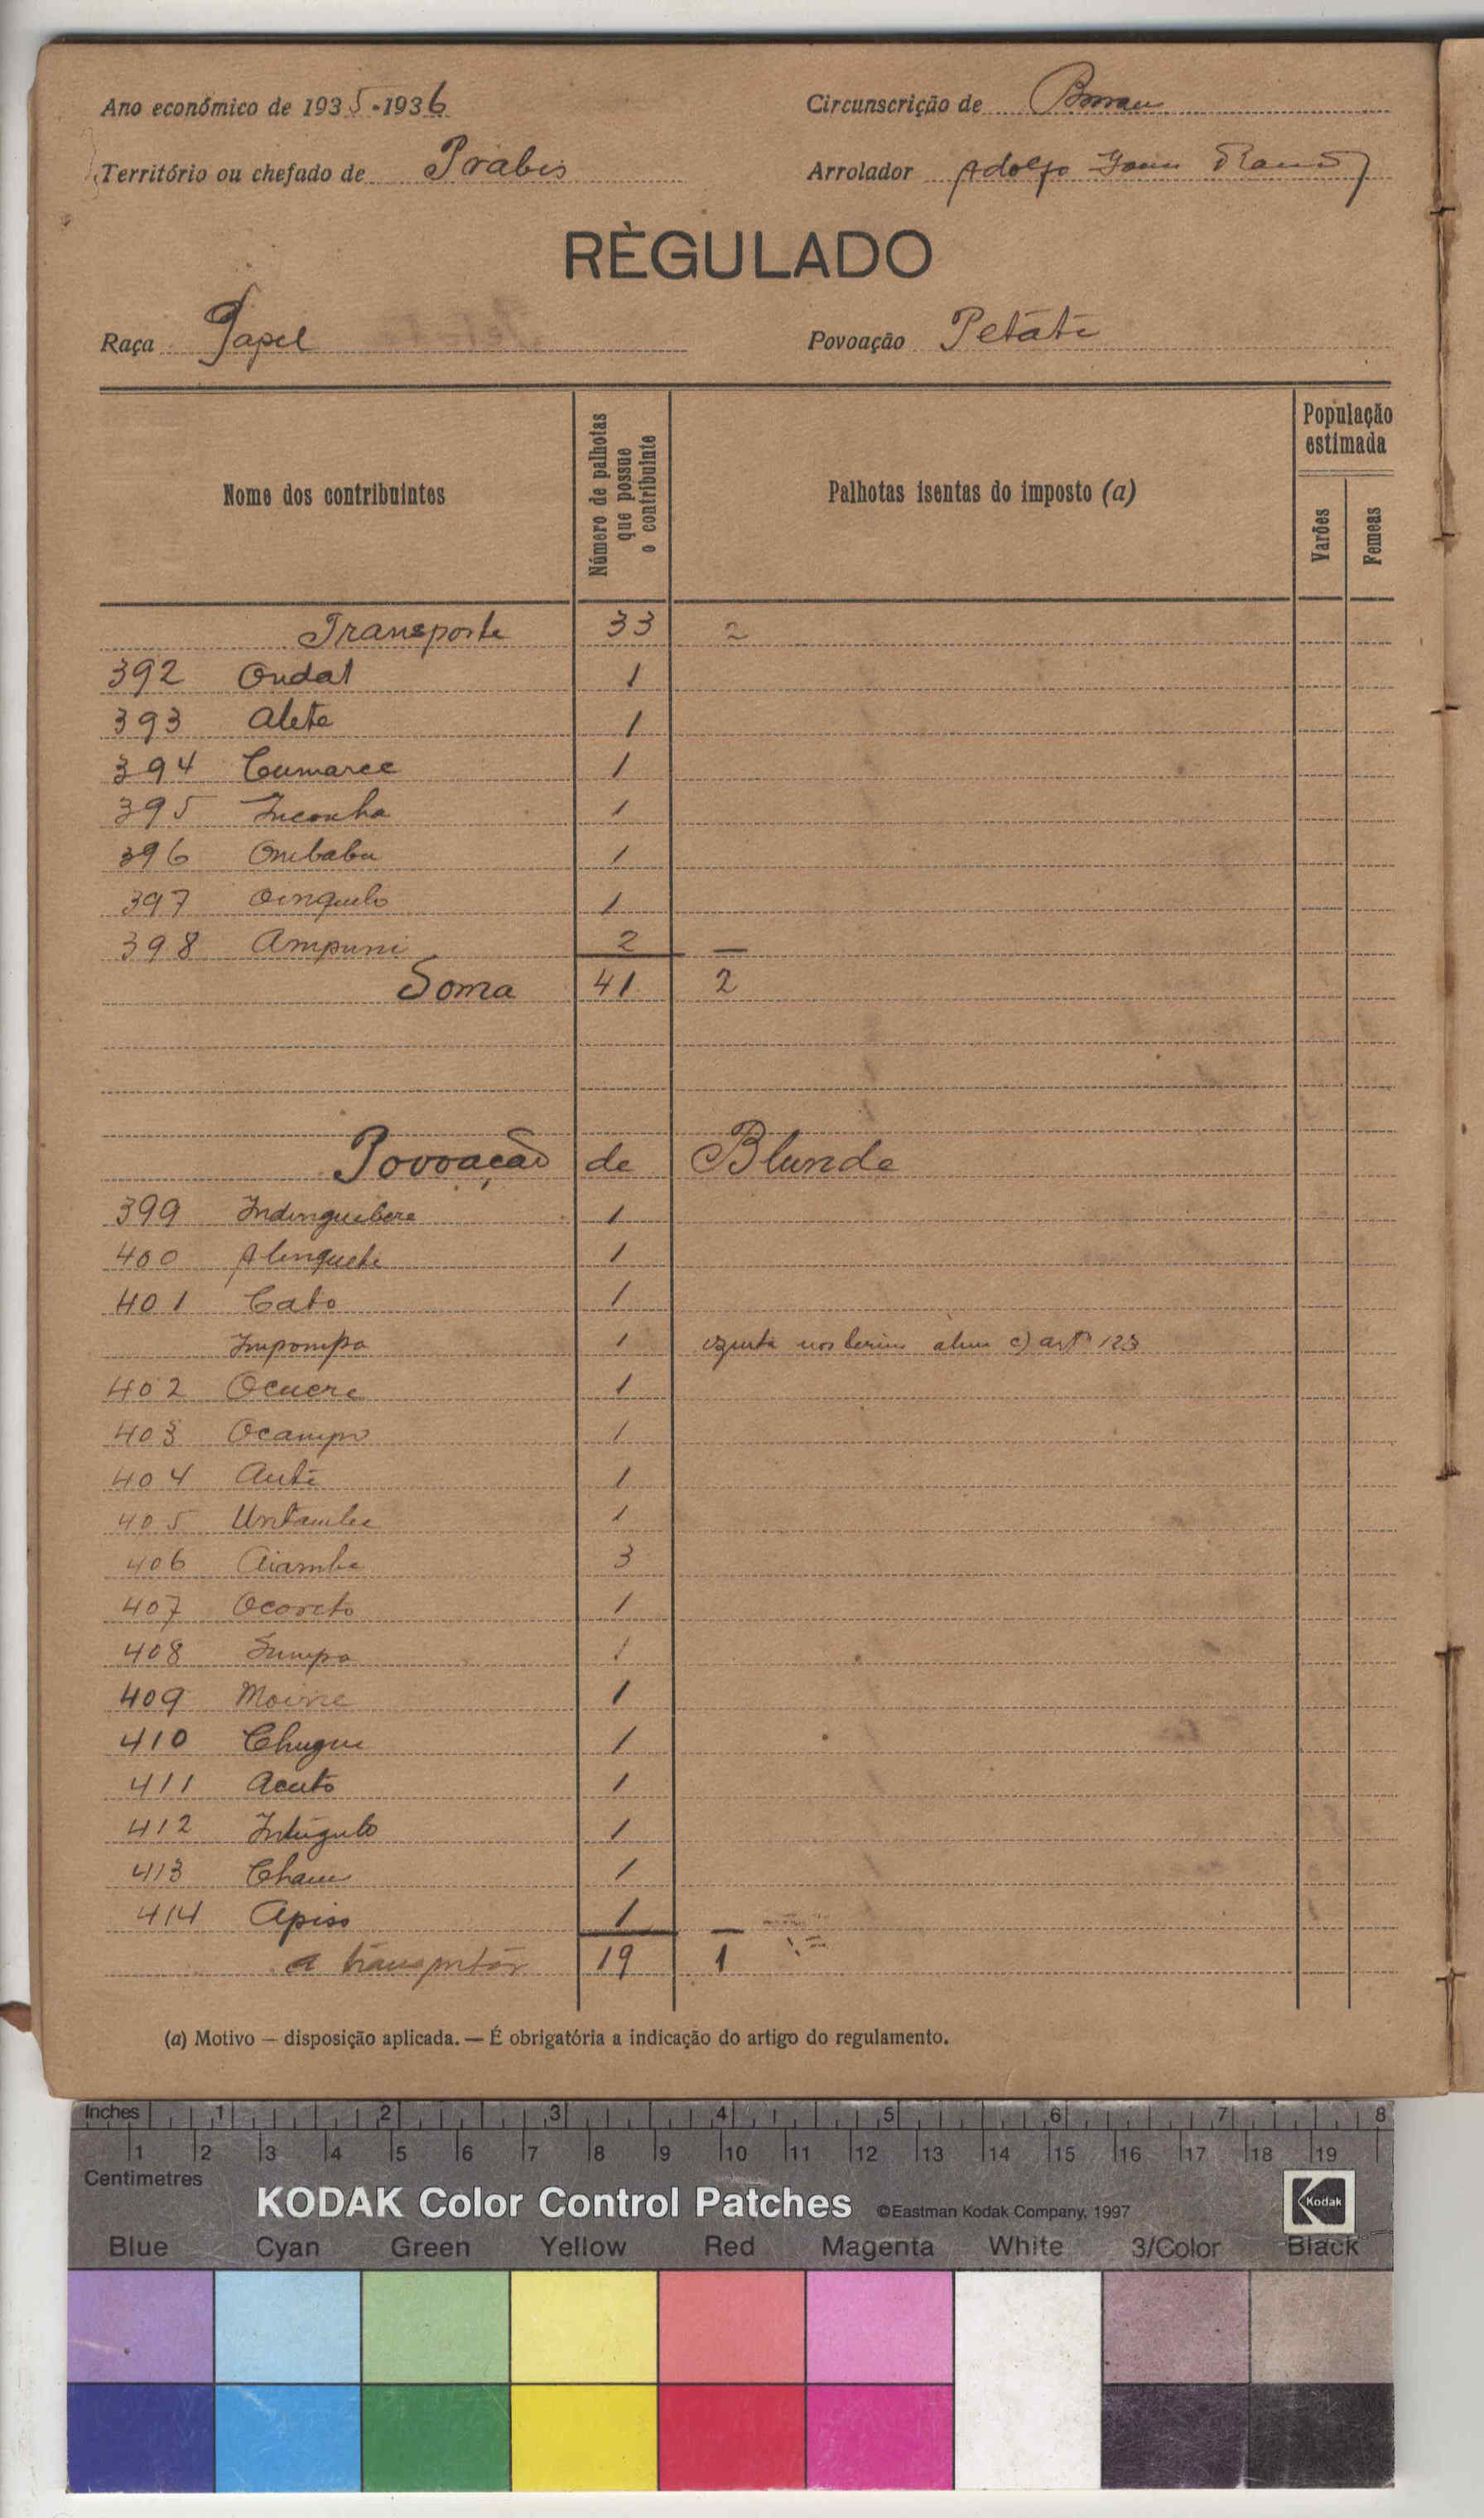 Ano económico de 1935-1936
Circunscrição de Bissau
Território ou chefado de Prabis
Arrolador Adolfo Ramos
RÈGULADO
Raça Papel
Povoação Petáti
Nome dos contribuintes
Número de palhotas que possue o contribuinte
Palhotas isentas do imposto (a)
População estimada
Varões
Femeas
Transporte 33 2
392 Ondal 1
393 Alete 1
394 Cumaree 1
395 Inconha 1
396 Ombabu 1
397 Oinquelo 1
398 Ampuni 2 —
Soma 41 2
Povoação de Blunde
399 Indinguebere 1
400 Alenquete 1
401 Cato 1
Impompa 1 alin c) artº 123
402 Ocuere 1
403 Ocampo 1
404 Auti 1
405 Untambe 1
406 Aiambe 3
407 Ocoreto 1
408 Sumpa 1
409 Moine 1
410 Chugue 1
411 Acuto 1
412 Intugulo 1
413 1
414 Apiss 1 —
a transportar 19 1
(a) Motivo — disposição aplicada. — É obrigatória a indicação do artigo do regulamento.
Inches 1 2 3 4 5 6 7 8
1 2 3 4 5 6 7 8 9 10 11 12 13 14 15 16 17 18 19
Centimetres
KODAK Color Control Patches ©Eastman Kodak Company, 1997 Kodak
Blue Cyan Green Yellow Red Magenta White 3/Color Black